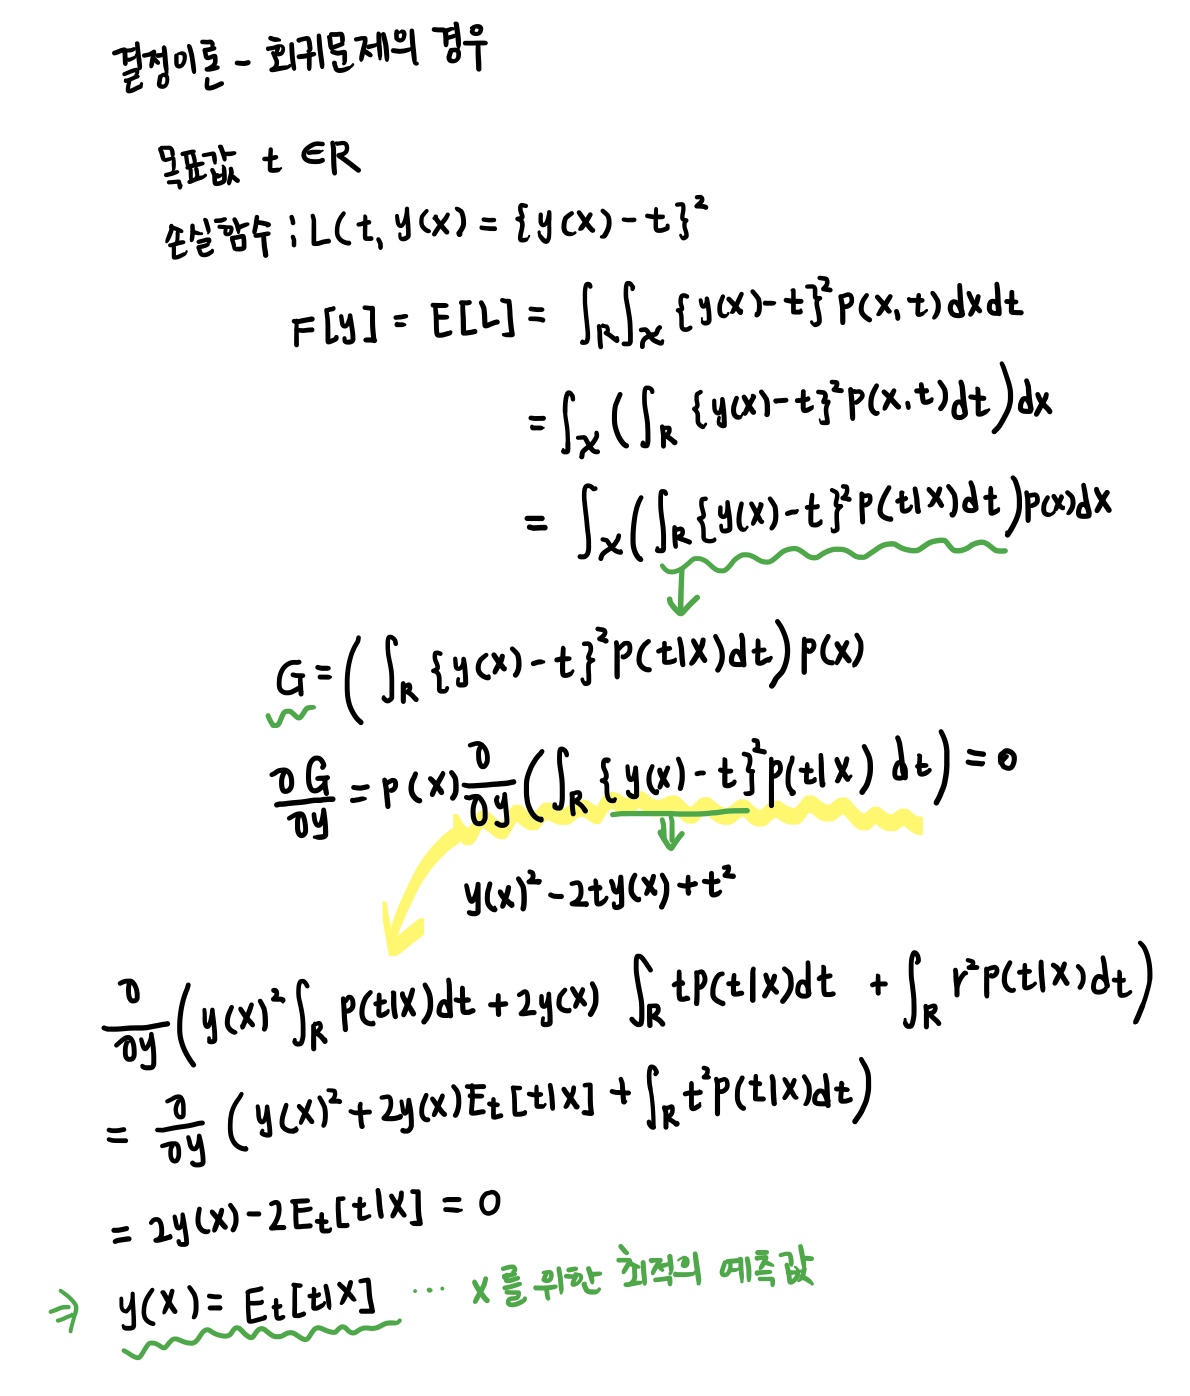 결정이론 - 회귀문제의 경우
목표값 t ∈ R
손실함수 : L(t, y(x) = {y(x) - t}²
F[y] = E[L] = ∫_R ∫_X {y(x) - t}² P(x, t) dx dt
= ∫_X ( ∫_R {y(x) - t}² P(x, t) dt ) dx
= ∫_X ( ∫_R {y(x) - t}² P(t|x) dt ) P(x) dx
G = ( ∫_R {y(x) - t}² P(t|x) dt ) P(x)
∂G/∂y = P(x) ∂/∂y ( ∫_R {y(x) - t}² P(t|x) dt ) = 0
y(x)² - 2ty(x) + t²
∂/∂y ( y(x)² ∫_R P(t|x) dt + 2y(x) ∫_R tP(t|x) dt + ∫_R r² P(t|x) dt )
= ∂/∂y ( y(x)² + 2y(x) E_t[t|x] + ∫_R t² P(t|x) dt )
= 2y(x) - 2E_t[t|x] = 0
⇒ y(x) = E_t[t|x] ··· x를 위한 최적의 예측값